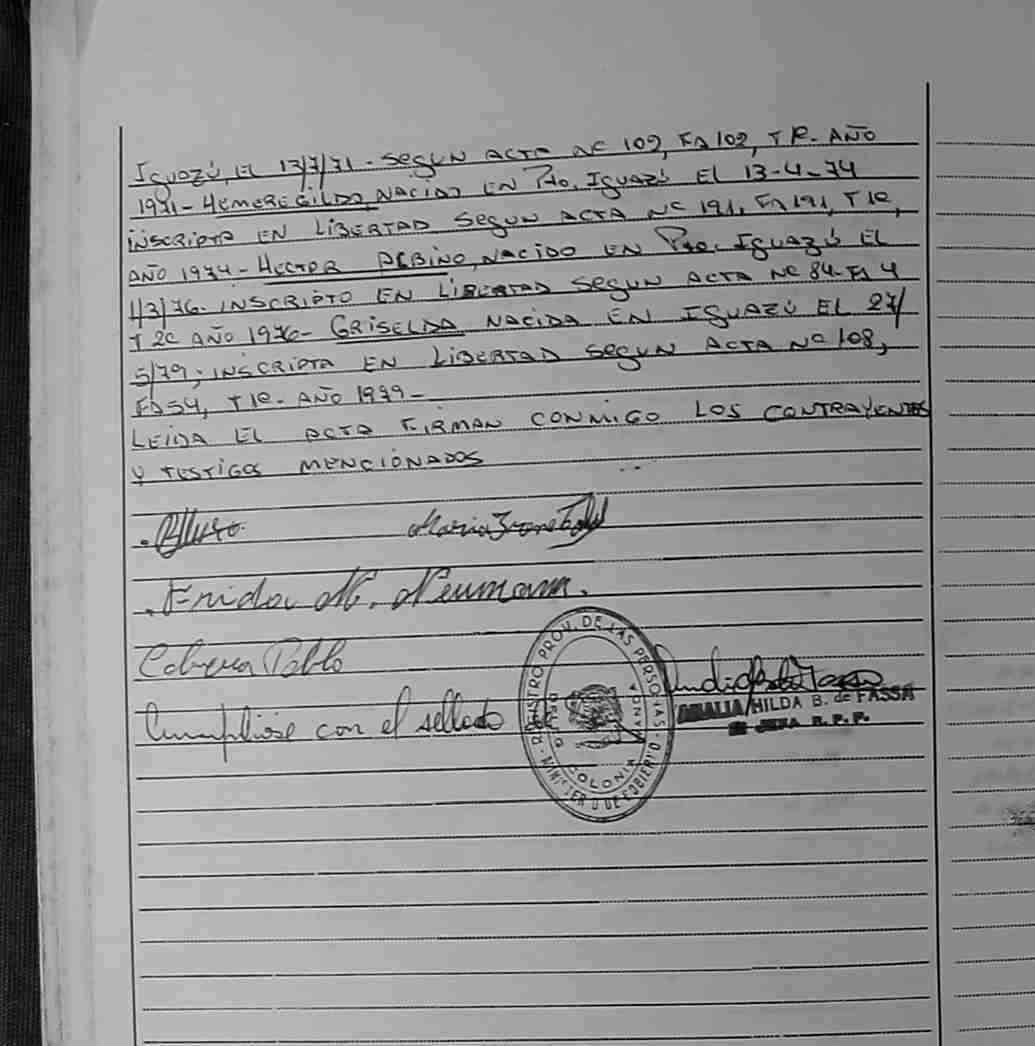 Iguazú, El 13/7/71 - Segun Acta Nº 109, Fº 109, Tº 1º. Año
1971 - Hemeregildo, Nacido En Pto. Iguazú El 13-4-74
inscripto En Libertad Segun Acta Nº 191, Fº 191, Tº 1º,
Año 1974 - Hector Albino, Nacido En Pto. Iguazú El
1/3/76. inscripto En Libertad Segun Acta Nº 84 - Fº 4
T 2º Año 1976 - Griselda, Nacida En Iguazú El 27/
5/79, inscripta En Libertad Segun Acta Nº 108,
Fº 54, T 1º. Año 1979 -
Leida El Acta Firman Conmigo Los Contrayentes
y testigos Mencionados
Maria Irone
Frida N. Neumann.
Cabrera Pablo
Cumpliose con el sellado
REGISTRO PROV. DE LAS PERSONAS
MINISTERIO DE GOBIERNO
COLONIA WANDA
AMALIA HILDA B. de FASSA
JEFA R.P.P.